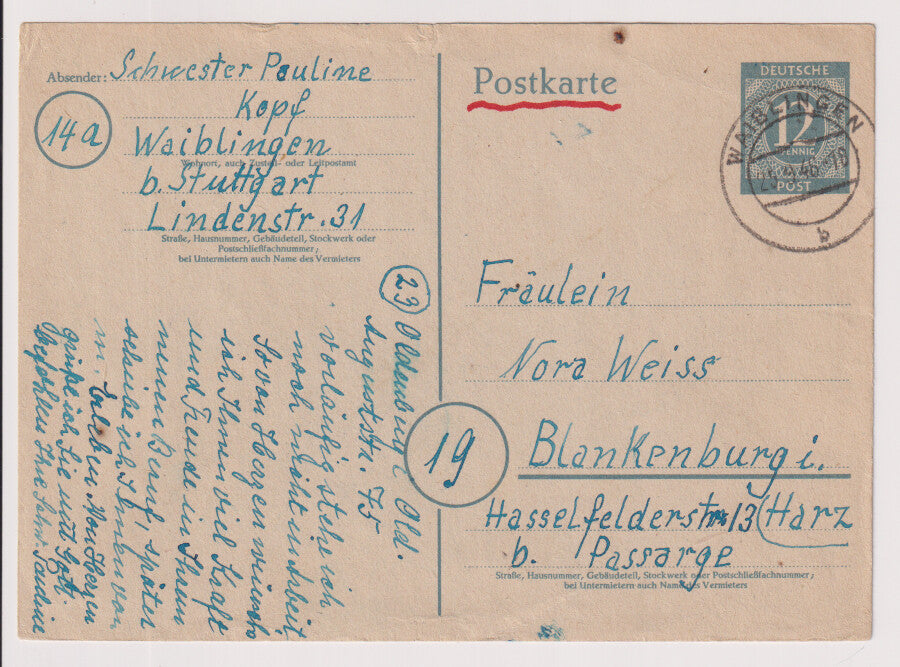 Absender: Schwester Pauline
Kopf
14a
Waiblingen
Wohnort, auch Zustell- oder Leitpostamt
b. Stuttgart
Lindenstr. 31
Straße, Hausnummer, Gebäudeteil, Stockwerk oder
Postschließfachnummer;
bei Untermietern auch Name des Vermieters
Postkarte
DEUTSCHE
12
PFENNIG
POST
WAIBLINGEN
b
Fräulein
Nora Weiss
19
Blankenburg i.
Hasselfelderstr. 13 (Harz
b. Passarge
Straße, Hausnummer, Gebäudeteil, Stockwerk oder Postschließfachnummer;
bei Untermietern auch Name des Vermieters
23 Oldenburg i Old.
Auguststr. 75
vorläufig stehe ich
noch nicht in Arbeit
So von Herzen wünsche
ich Ihnen viel Kraft
und Freude in Ihrem
neuen Beruf, später
schreibe ich Ihnen von
m. Erleben. Von Herzen
grüße ich Sie und Gott
befohlen Ihre Schw. Pauline